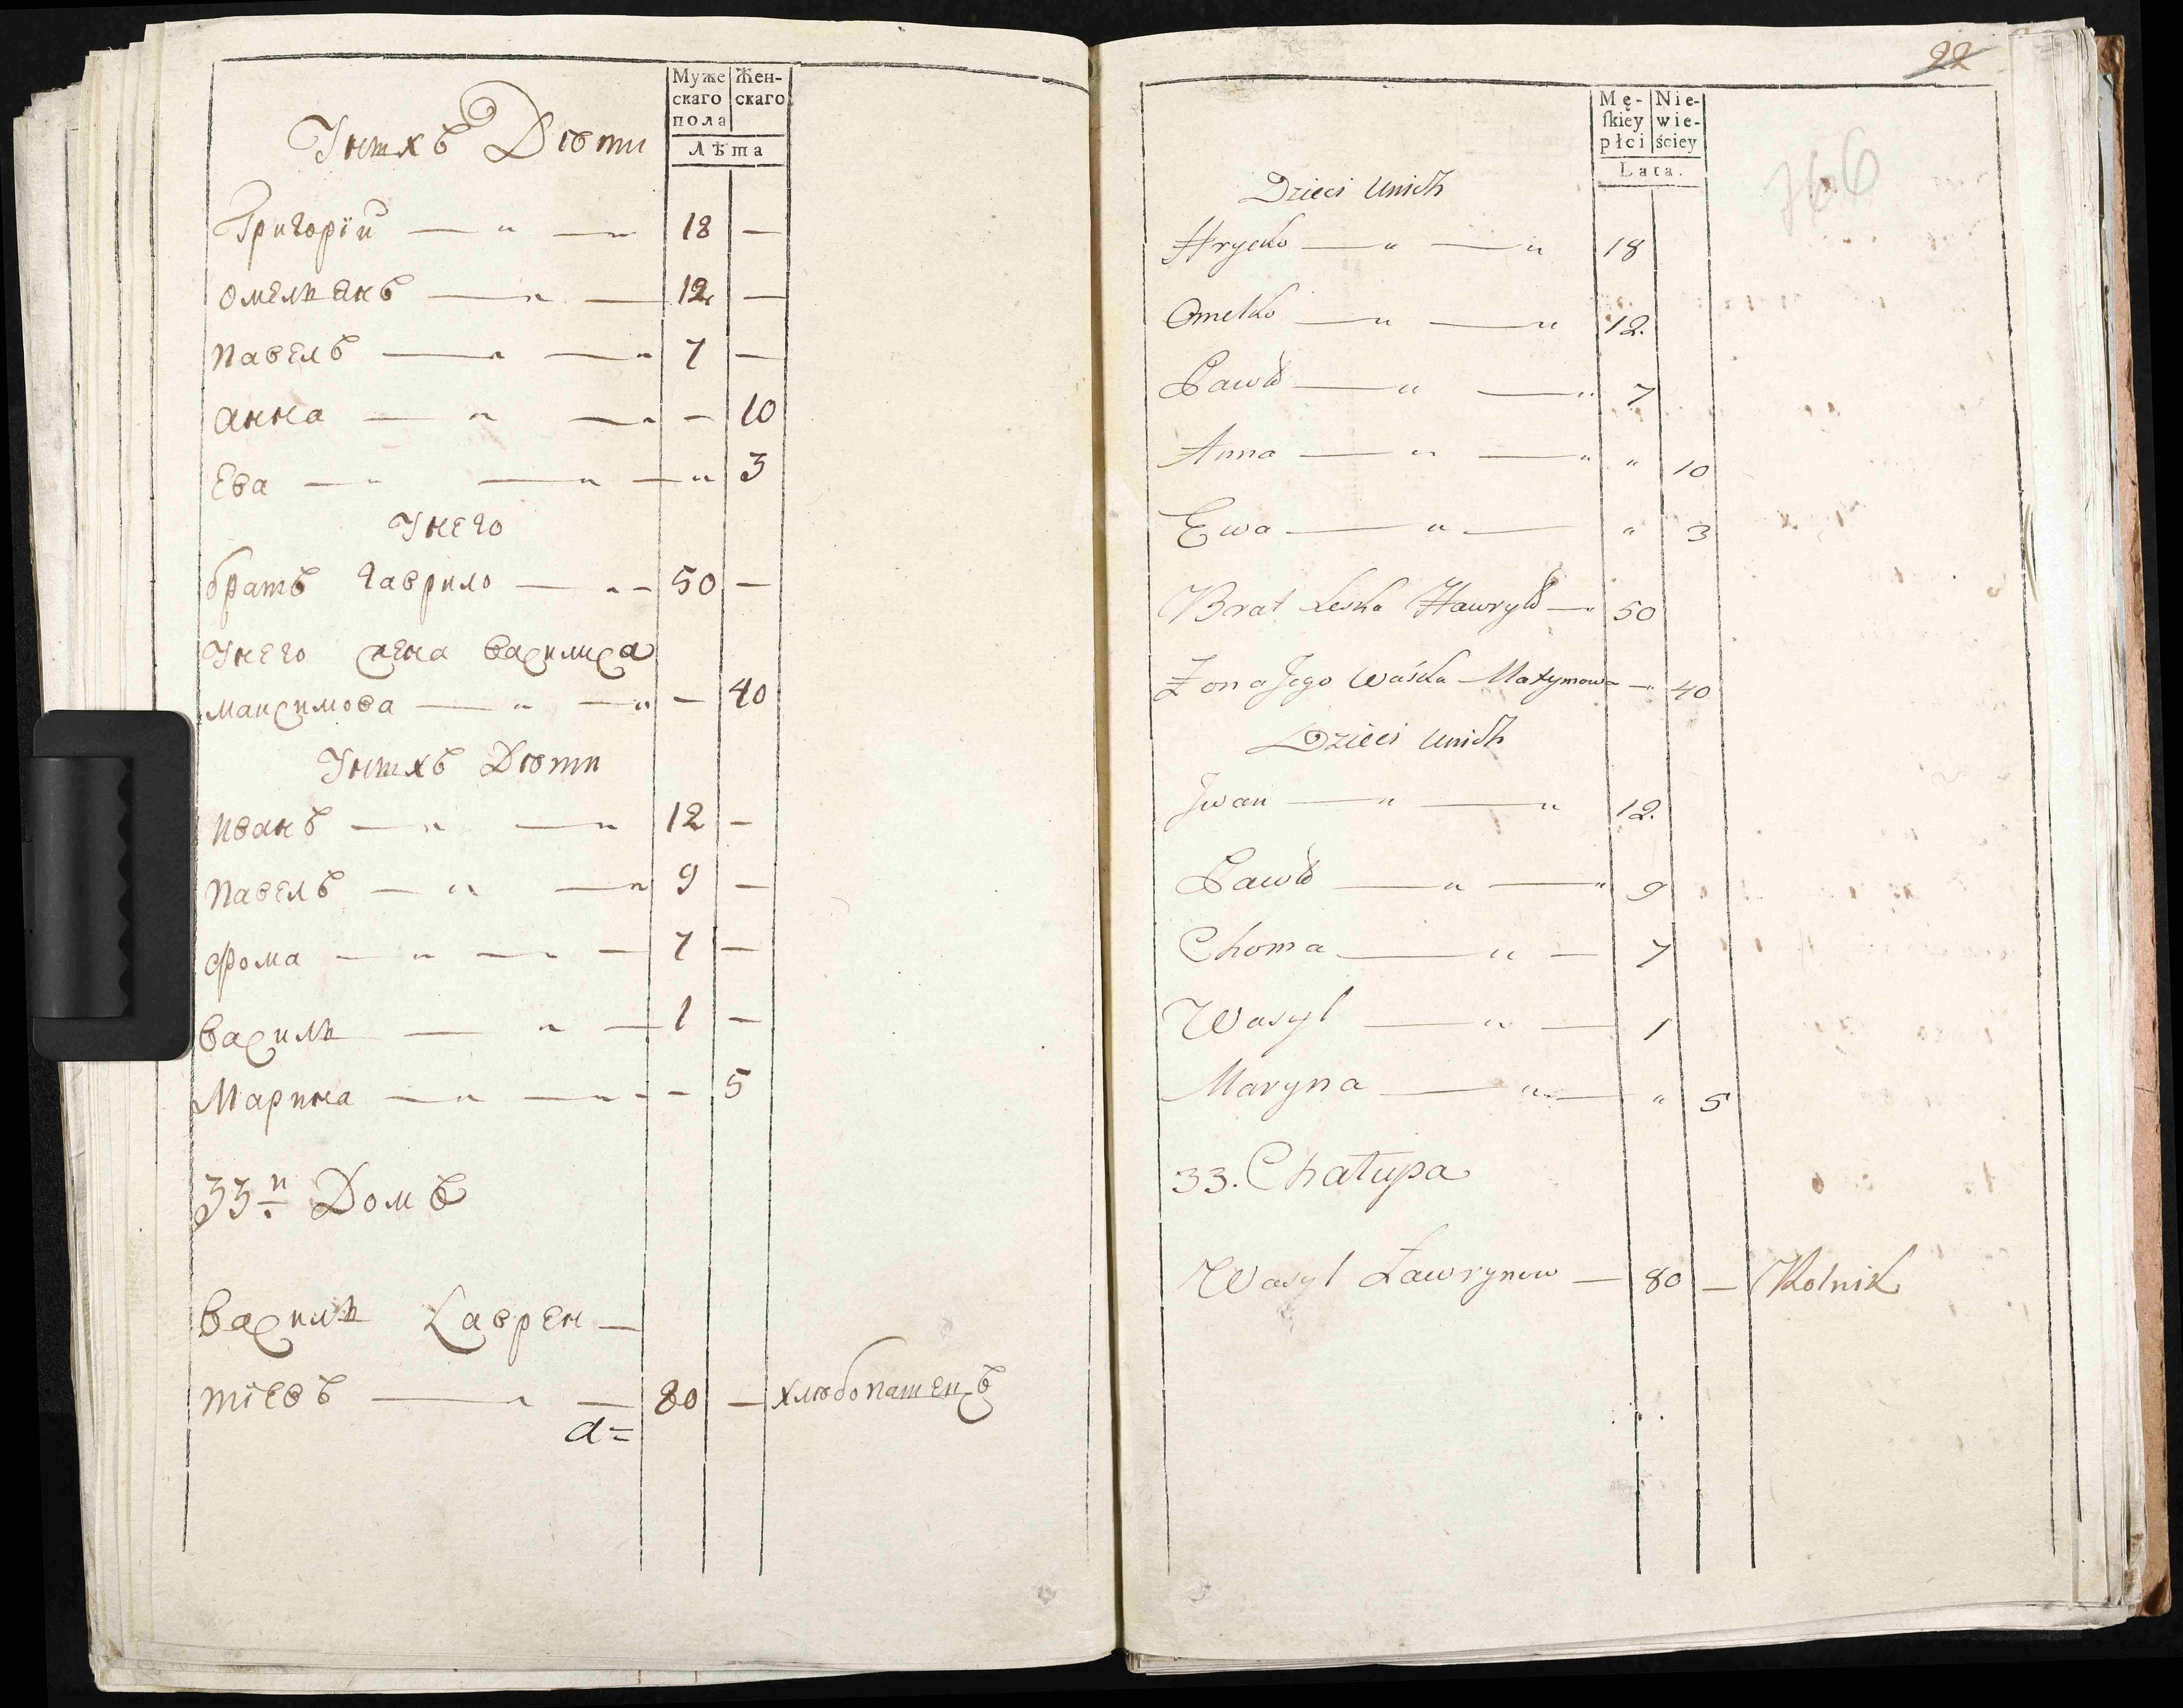 Муже Жен-
скаго скаго
пола
Лѣта
Унихъ Дѣти
Григорїи — „ — „ 18 —
Омельянъ — „ — 12 —
Павелъ — „ — „ 7 —
Анна — „ — „ — 10
Ева — „ — „ — „ 3
Унего
братъ Гаврило — „ — 50 —
Унего жена Василиса
Максимова — „ — „ — 40
Унихъ Дѣти
Иванъ — „ — „ 12 —
Павелъ — „ — „ 9 —
Фома — „ — „ — 7 —
Василь — „ — 1 —
Марина — „ — „ — — 5
33й Домъ
Василь Лаврен—
тїевъ — „ — 80 — хлѣбопашецъ
а=
22
Mę- Nie-
ſkiey wie-
płci ściey
Lata.
766
Dzieci Unich
Hrycko — „ — „ 18
Omelko — „ — „ 12.
Pawło — „ — „ 7
Anna — „ — „ „ 10
Ewa — „ — „ 3
Brat Leska Hawryło — „ 50
Żona Jego Waśka Maxymowa — „ 40
Dzieci Unich
Jwan — „ — „ 12.
Pawło — „ — „ 9
Choma — „ — 7
Wasyl — „ — 1
Maryna — „ — „ 5
33. Chałupa
Wasyl Ławrynow — 80 — Rolnik